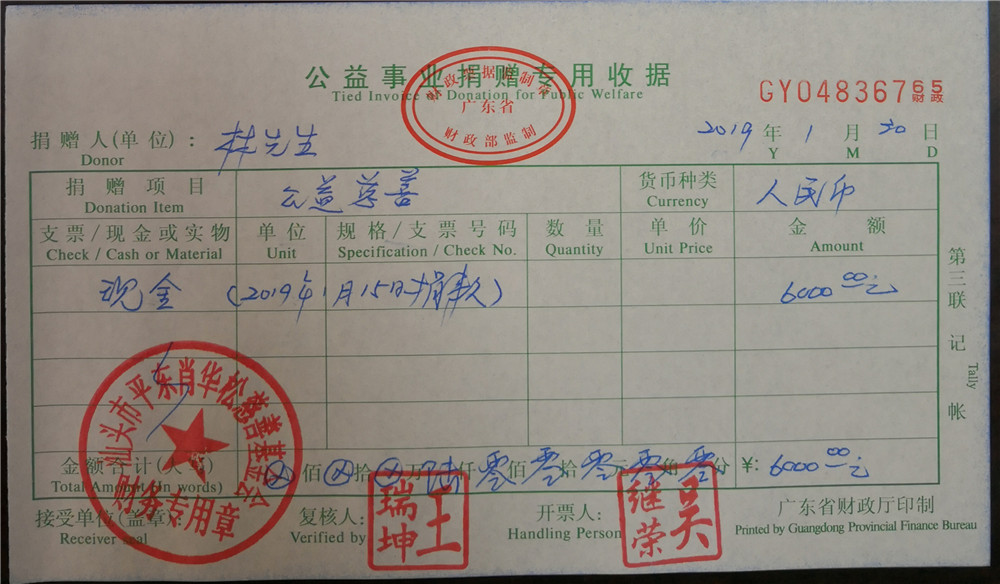 公益事业捐赠专用收据
Tied Invoice of Donation for Public Welfare
财政票据监制章
广东省
财政部监制
GY04836765
财政
捐赠人(单位):林先生
Donor
2019年1月30日
Y M D
捐赠项目 公益慈善 货币种类 人民币
Donation Item Currency
支票/现金或实物 单位 规格/支票号码 数量 单价 金额
Check / Cash or Material Unit Specification / Check No. Quantity Unit Price Amount
现金 (2019年1月15日捐款) 6000.00元
第三联 记帐
Tally
金额合计(大写) ⊗佰⊗拾⊗万陆仟零佰零拾零元零角零分 ¥: 6000.00元
Total Amount (in words)
汕头市平东肖华松慈善基金会
财务专用章
接受单位(盖章): 复核人: 王瑞坤 开票人: 吴继荣 广东省财政厅印制
Receiver seal Verified by Handling Person Printed by Guangdong Provincial Finance Bureau